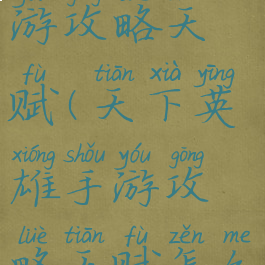 游攻略天
fù tiān xià yīng
赋(天下英
xióng shǒu yóu gōng
雄手游攻
lüè tiān fù zěn me
略天赋怎么